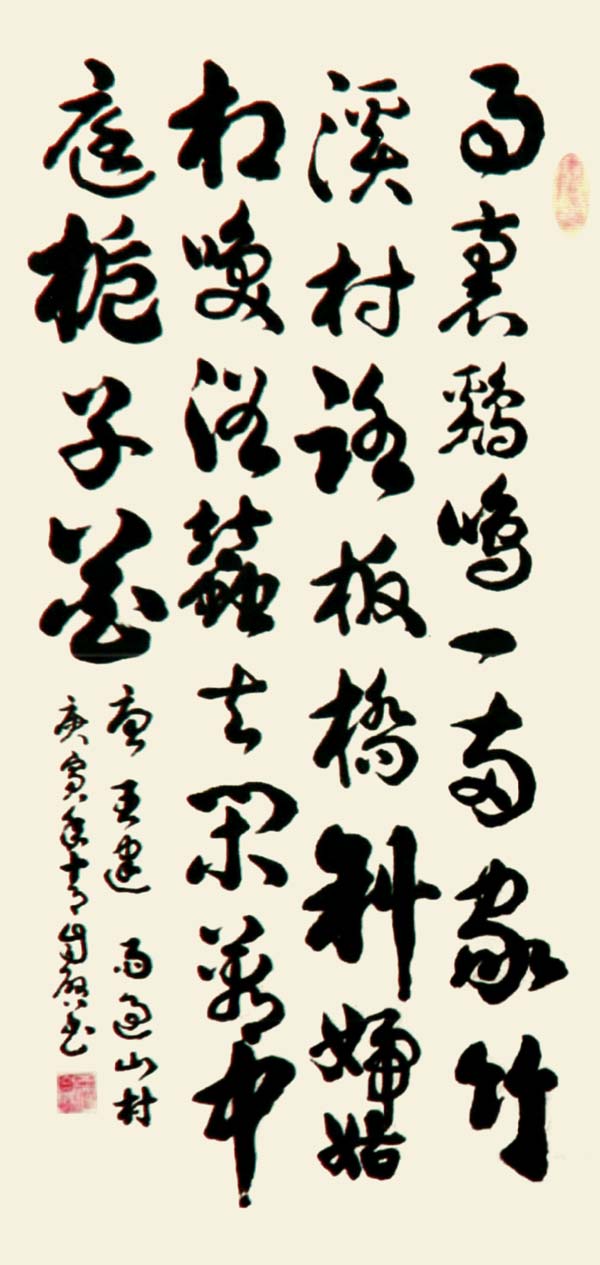 雨裏鷄鳴一兩家竹
溪村路板橋斜婦姑
相喚浴蠶去閑著中
庭栀子花
唐王建 雨過山村
庚寅年十月 書